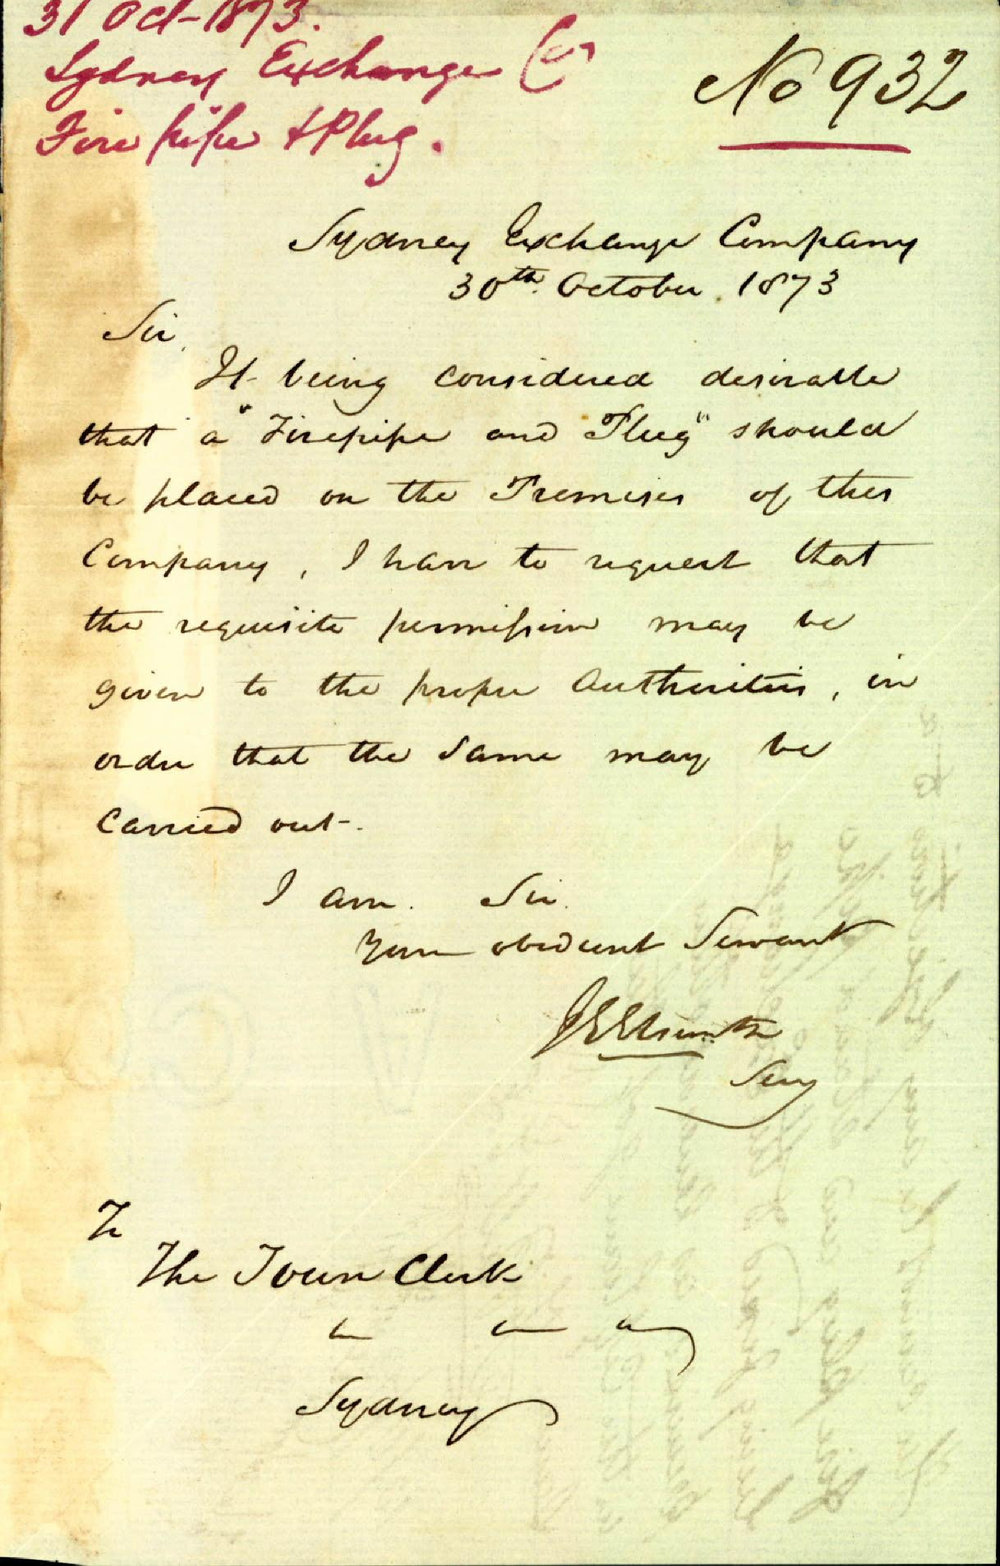 31 Oct-1873.
Sydney Exchange Co
Fire pipe & Plug.
No 932
Sydney Exchange Company
30th October 1873
Sir,
It being considered desirable
that a "Firepipe and Plug" should
be placed on the Premises of this
Company, I have to request that
the requisite permission may be
given to the proper Authorities, in
order that the same may be
carried out-.
I am. Sir.
Your obedient Servant
Secy
To
The Town Clerk
Sydney